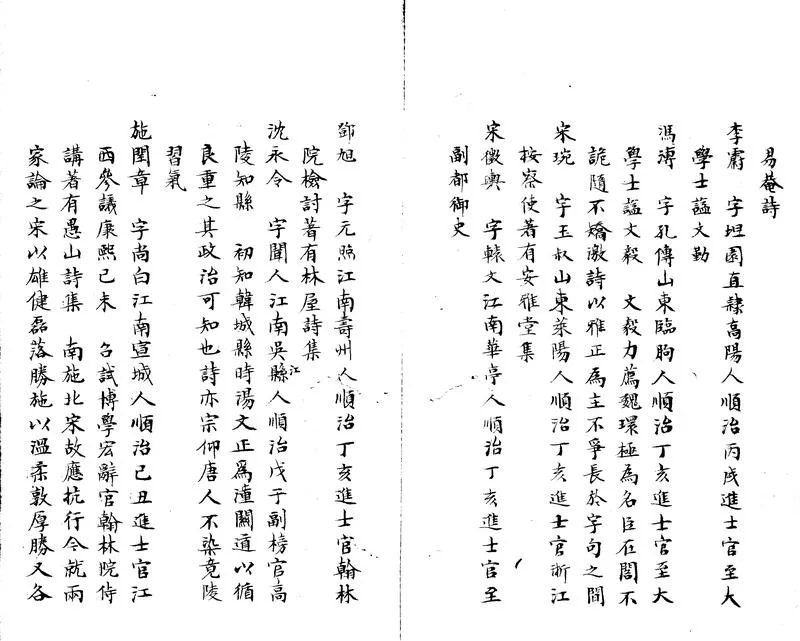 易菴詩
李霨　字坦園直隸高陽人順治丙戌進士官至大
學士謚文勤
馮溥　字孔傳山東臨朐人順治丁亥進士官至大
學士謚文毅　文毅力薦魏環極為名臣在閣不
詭隨不嬌激詩以雅正為主不爭長於字句之間
宋琬　字玉叔山東萊陽人順治丁亥進士官浙江
按察使著有安雅堂集
宋徵輿　字轅文江南華亭人順治丁亥進士官至
副都御史
鄧旭　字元照江南壽州人順治丁亥進士官翰林
院檢討著有林屋詩集
沈永令　字聞人江南吳江縣人順治戊子副榜官高
陵知縣　初知韓城縣時湯文正為潼關道以循
良重之其政治可知也詩亦宗仰唐人不染竟陵
習氣
施閏章　字尚白江南宣城人順治己丑進士官江
西參議康熙己未　召試博學宏辭官翰林院侍
講著有愚山詩集　南施北宋故應抗行今就兩
家論之宋以雄健磊落勝施以溫柔敦厚勝又各